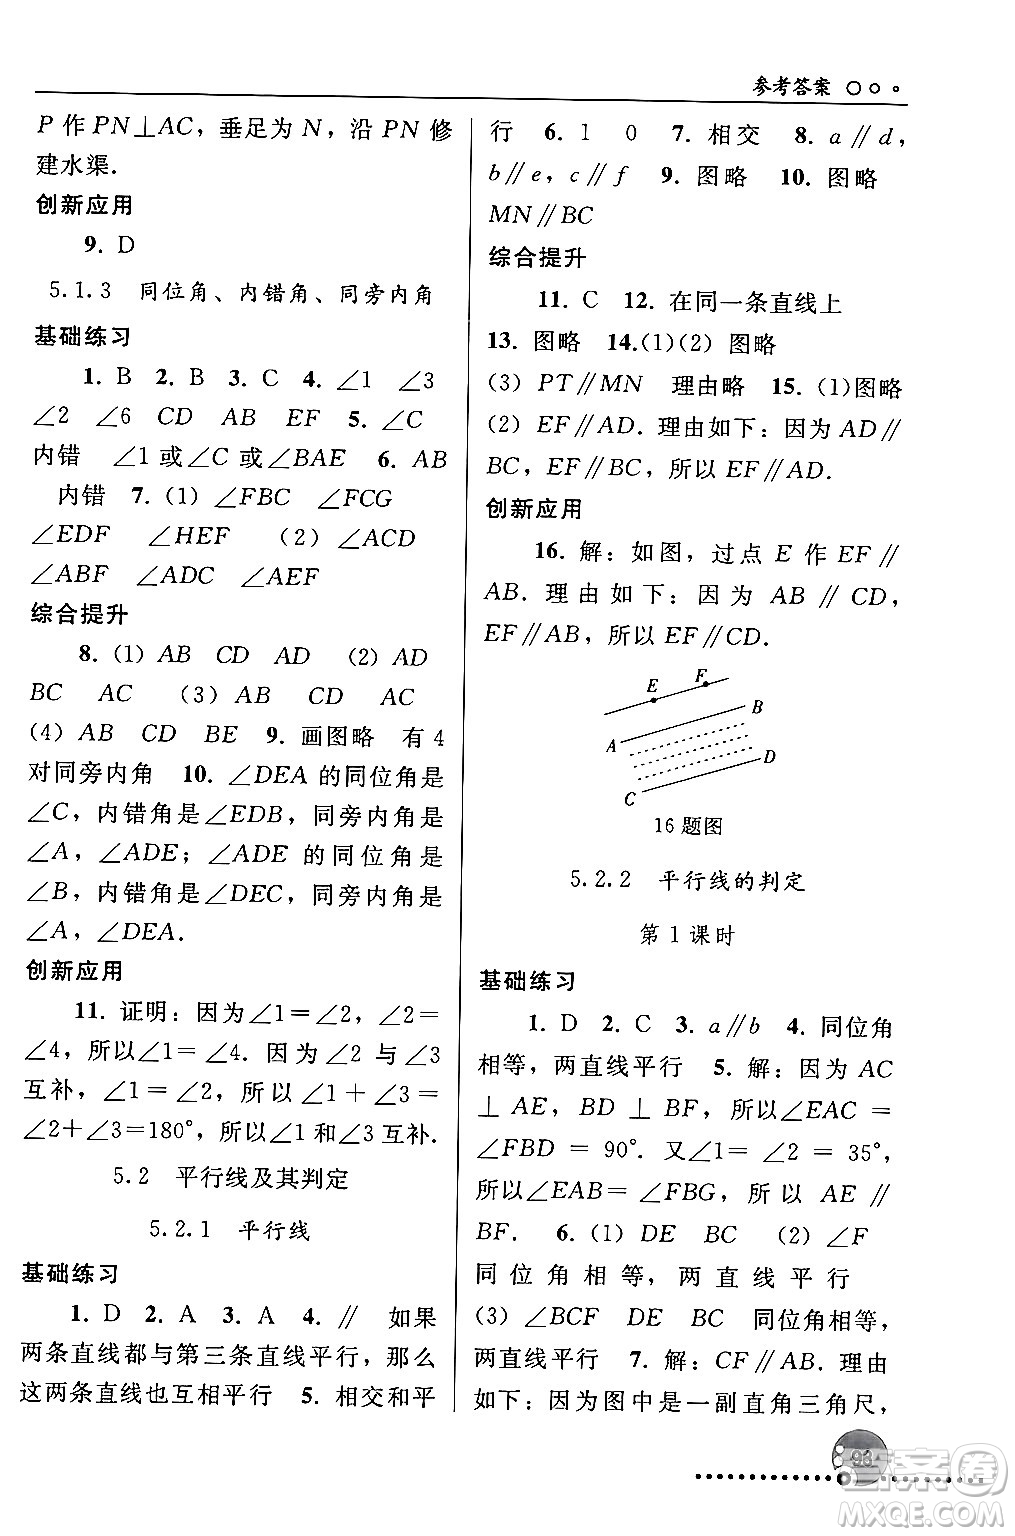 参考答案
P 作 PN⊥AC，垂足为 N，沿 PN 修
建水渠.
创新应用
9. D
5.1.3 同位角、内错角、同旁内角
基础练习
1. B 2. B 3. C 4. ∠1 ∠3
∠2 ∠6 CD AB EF 5. ∠C
内错 ∠1 或∠C 或∠BAE 6. AB
内错 7. (1) ∠FBC ∠FCG
∠EDF ∠HEF (2) ∠ACD
∠ABF ∠ADC ∠AEF
综合提升
8. (1) AB CD AD (2) AD
BC AC (3) AB CD AC
(4) AB CD BE 9. 画图略 有 4
对同旁内角 10. ∠DEA 的同位角是
∠C，内错角是∠EDB，同旁内角是
∠A，∠ADE；∠ADE 的同位角是
∠B，内错角是∠DEC，同旁内角是
∠A，∠DEA.
创新应用
11. 证明：因为∠1=∠2，∠2=
∠4，所以∠1=∠4. 因为∠2 与∠3
互补，∠1=∠2，所以∠1+∠3=
∠2+∠3=180°，所以∠1 和∠3 互补.
5.2 平行线及其判定
5.2.1 平行线
基础练习
1. D 2. A 3. A 4. ∥ 如果
两条直线都与第三条直线平行，那么
这两条直线也互相平行 5. 相交和平
行 6. 1 0 7. 相交 8. a∥d，
b∥e，c∥f 9. 图略 10. 图略
MN∥BC
综合提升
11. C 12. 在同一条直线上
13. 图略 14.(1)(2) 图略
(3) PT∥MN 理由略 15. (1)图略
(2) EF∥AD. 理由如下：因为 AD∥
BC，EF∥BC，所以 EF∥AD.
创新应用
16. 解：如图，过点 E 作 EF∥
AB. 理由如下：因为 AB∥CD，
EF∥AB，所以 EF∥CD.
E F
B
A
D
C
16 题图
5.2.2 平行线的判定
第 1 课时
基础练习
1. D 2. C 3. a∥b 4. 同位角
相等，两直线平行 5. 解：因为 AC
⊥AE，BD⊥BF，所以∠EAC =
∠FBD = 90°. 又∠1=∠2 = 35°，
所以∠EAB=∠FBG，所以 AE∥
BF. 6. (1) DE BC (2) ∠F
同位角相等，两直线平行
(3) ∠BCF DE BC 同位角相等，
两直线平行 7. 解：CF∥AB. 理由
如下：因为图中是一副直角三角尺，
93
答案圈
MXQE.COM